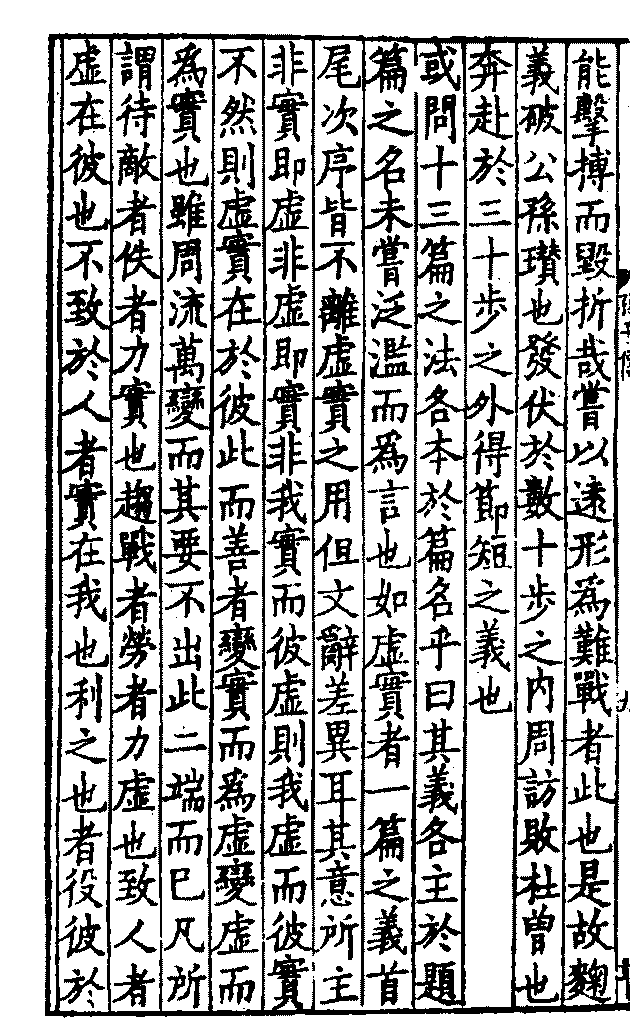 能擊搏而毀折哉嘗以遠形為難戰者此也是故麴
義破公孫瓚也發伏於數十步之內周訪敗杜曾也
奔赴於三十步之外得節短之義也
或問十三篇之法各本於篇名乎曰其義各主於題
篇之名未嘗泛濫而為言也如虛實者一篇之義首
尾次序皆不離虛實之用但文辭差異耳其意所主
非實即虛非虛即實非我實而彼虛則我虛而彼實
不然則虛實在於彼此而善者變實而為虛變虛而
為實也雖周流萬變而其要不出此二端而已凡所
謂待敵者佚者力實也趨戰者勞者力虛也致人者
虛在彼也不致於人者實在我也利之也者役彼於